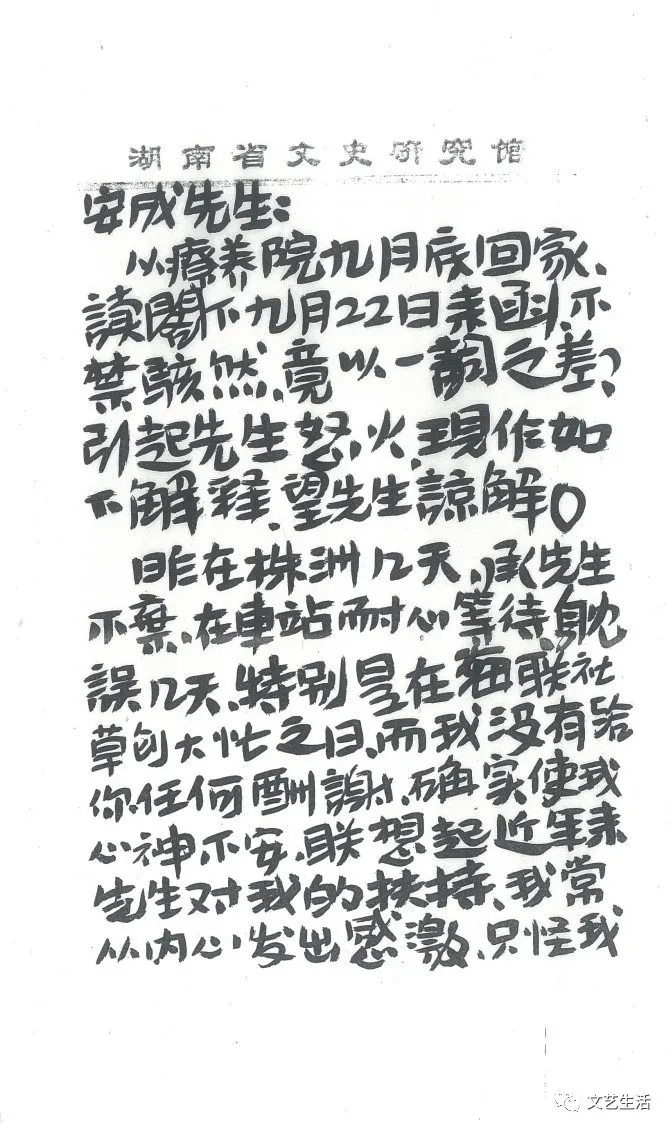 湖南省文史研究馆
安成先生:
从療养院九月底回家、
讀閣下九月22日来函、不
禁駭然、竟以一詞之差、
引起先生怒火、現作如
下解釋、望先生諒解。
昨在株洲几天、承先生
不棄、在車站耐心等待、躭
誤几天、特别是在海联社
草创大忙之日、而我没有给
你任何酬謝、确实使我
心神不安、联想起近年来
先生对我的扶持、我常
从内心发出感激、只怪我
文艺生活